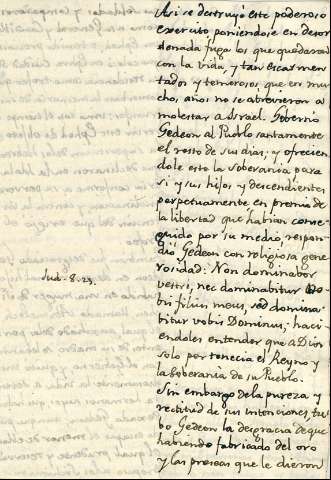 Asi se destruyó este poderoso
exercito, poniendose en desor
denada fuga los que quedaron
con la vida, y tan escarmen
tados y temerosos, que en mu
chos años no se atrevieron a
molestar a Israel. Goberno
Gedeon al Pueblo santamente
el resto de sus dias; y ofrecien
dole este la soberania para
si y sus hijos y descendientes
perpetuamente en premio de
la libertad que habian conse
guido por su medio, respon
dió Gedeon con religiosa gene
rosidad: Non dominabor
vestri, nec dominabitur vo
bis filius meus, sed domina
bitur vobis Dominus; haci
endoles entender que a Dios
solo pertenecia el Reyno y
la soberania de su Pueblo.
Sin embargo de la pureza y
rectitud de sus intenciones, tu
bo Gedeon la desgracia de que
habiendo fabricado del oro
y las preseas que le dieron
Jud. 8. 23.